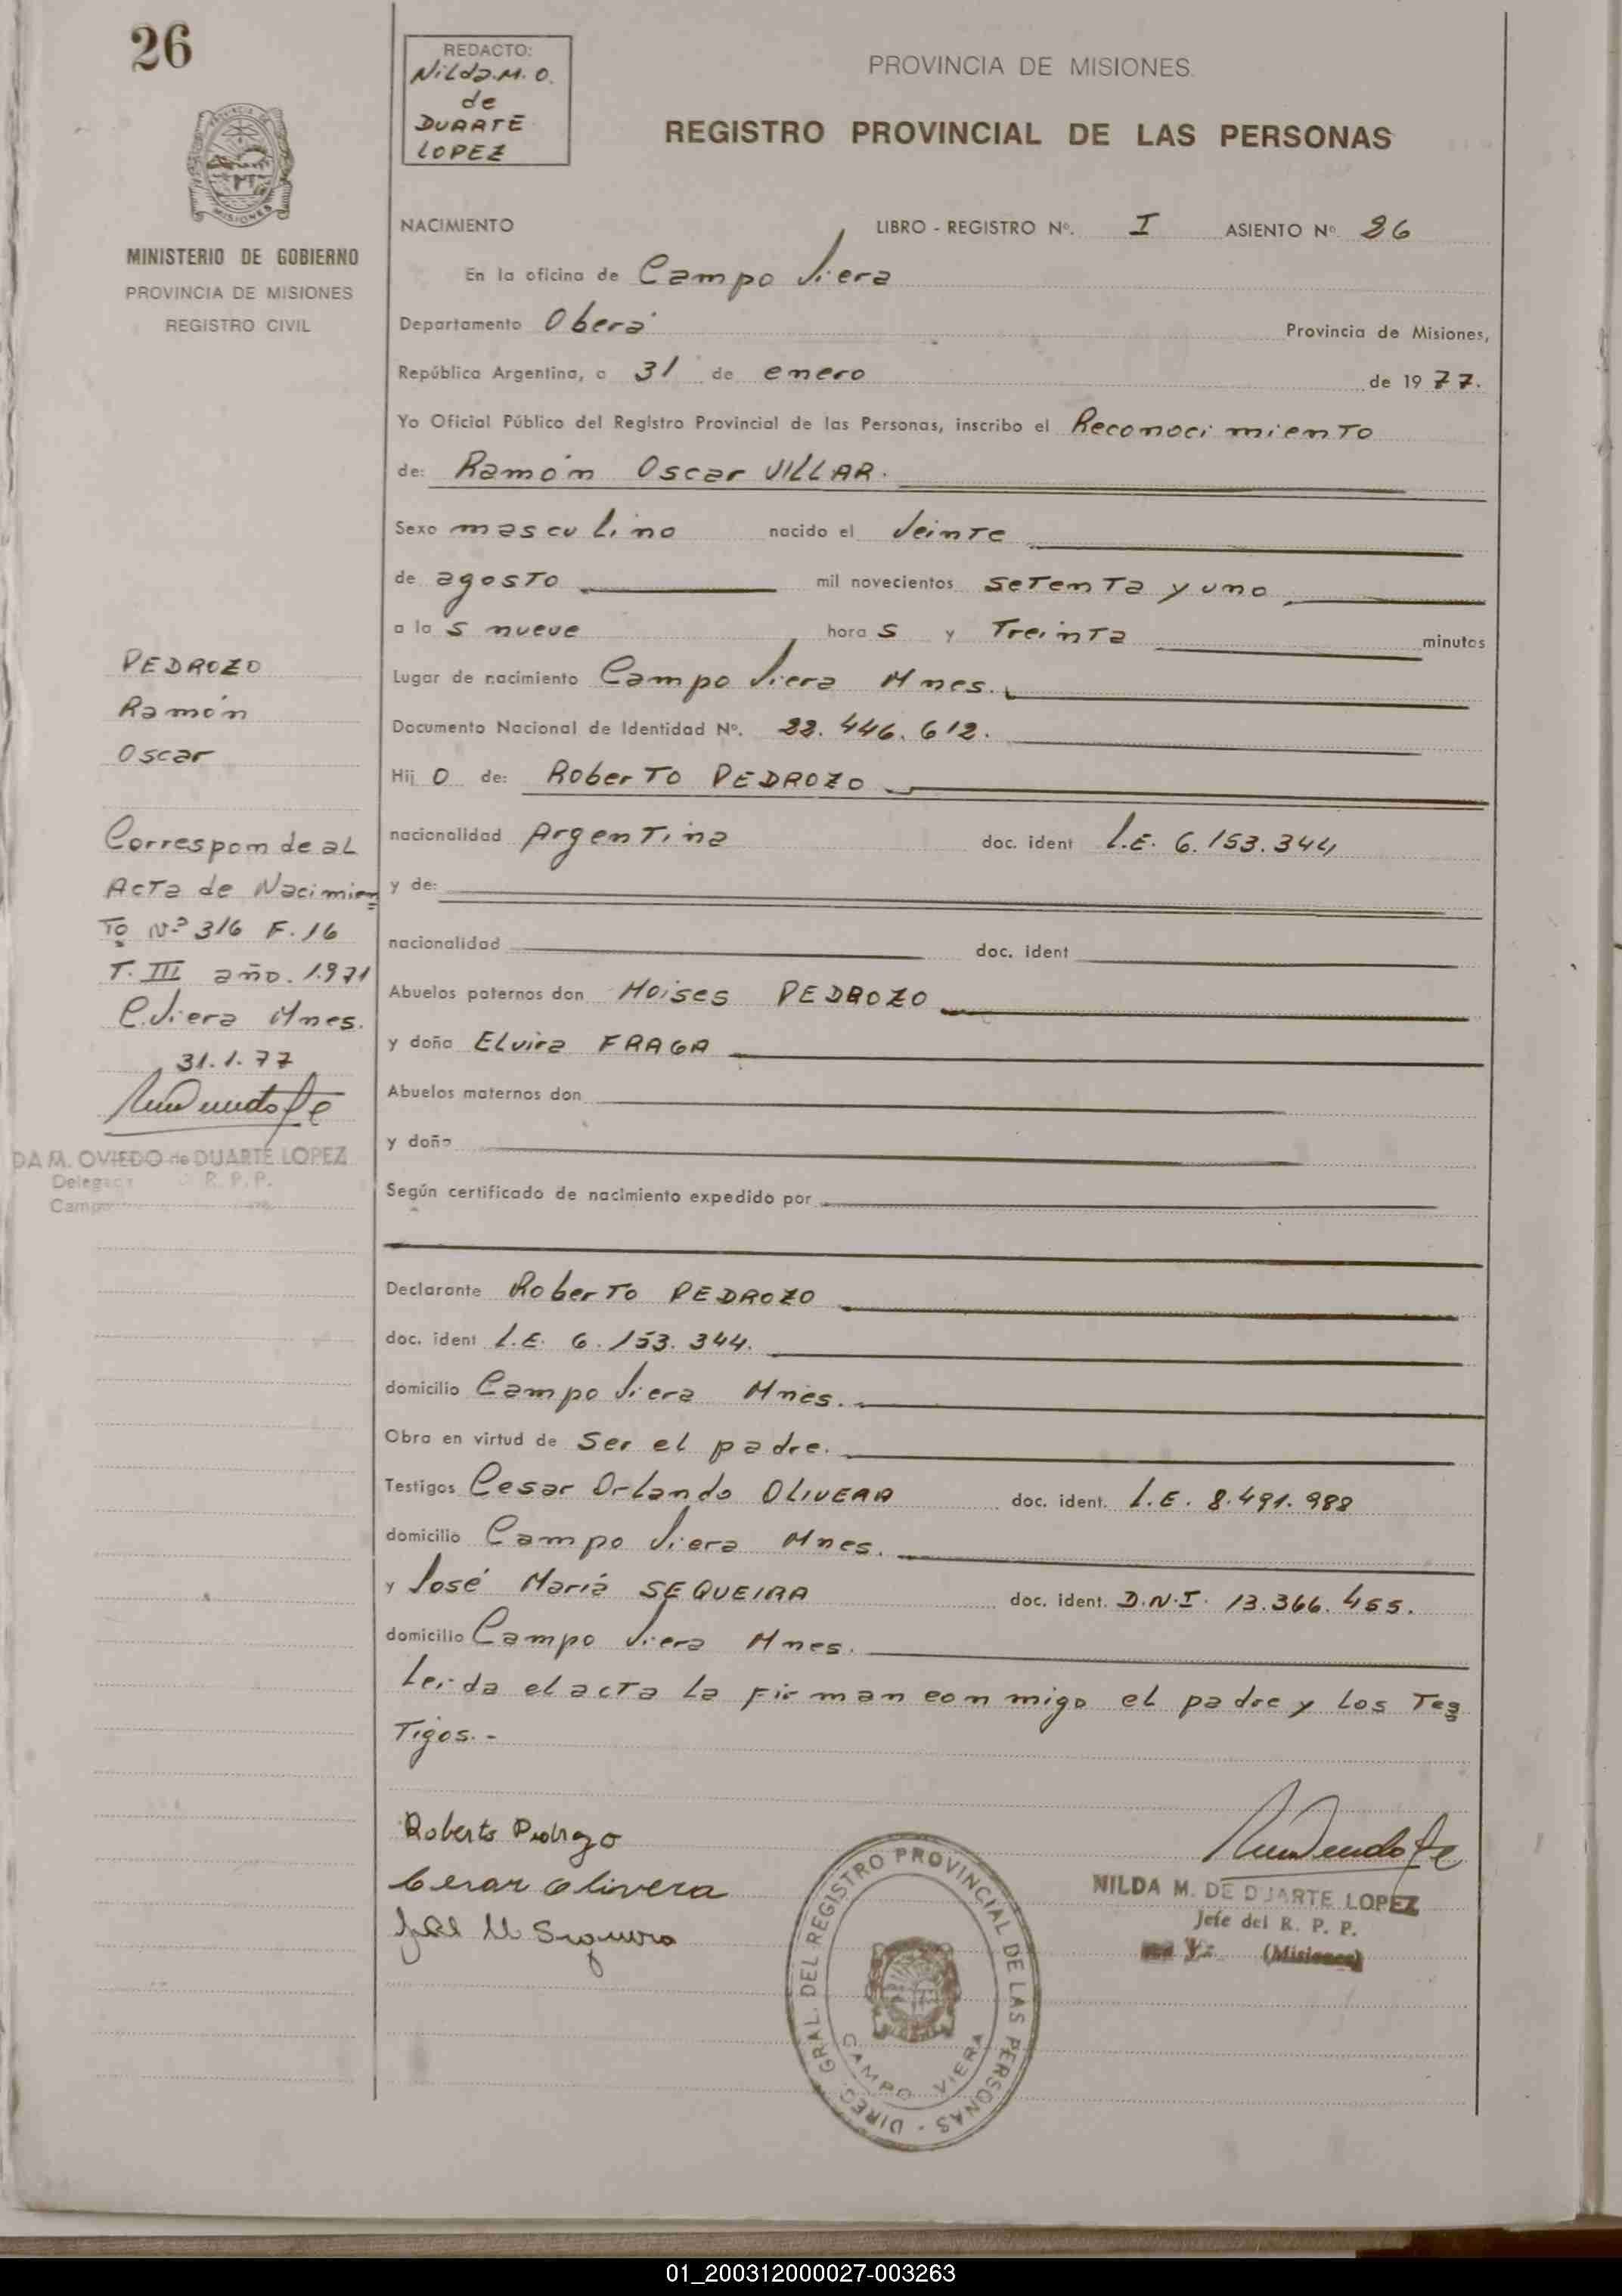 26
REDACTO:
Nilda.M.O.
de
DUARTE
LOPEZ
PROVINCIA DE MISIONES
REGISTRO PROVINCIAL DE LAS PERSONAS
MINISTERIO DE GOBIERNO
PROVINCIA DE MISIONES
REGISTRO CIVIL
NACIMIENTO LIBRO - REGISTRO Nº. I ASIENTO Nº 26
En la oficina de Campo Viera
Departamento Oberá Provincia de Misiones,
República Argentina, a 31 de enero de 1977.
Yo Oficial Público del Registro Provincial de las Personas, inscribo el Reconocimiento
de: Ramón Oscar VILLAR.
Sexo masculino nacido el Veinte
de agosto mil novecientos setenta y uno
a las nueve horas y Treinta minutos
Lugar de nacimiento Campo Viera Mnes.
Documento Nacional de Identidad Nº. 22.446.612.
Hijo de: Roberto PEDROZO
nacionalidad Argentina doc. ident L.E. 6.153.344
y de:
nacionalidad doc. ident
Abuelos paternos don Moises PEDROZO
y doña Elvira FRAGA
Abuelos maternos don
y doña
Según certificado de nacimiento expedido por
Declarante Roberto PEDROZO
doc. ident L.E. 6.153.344.
domicilio Campo Viera Mnes.
Obra en virtud de ser el padre.
Testigos Cesar Orlando OLIVERA doc. ident. L.E. 8.491.988
domicilio Campo Viera Mnes.
y José Mariá SEQUEIRA doc. ident. D.N.I. 13.366.455.
domicilio Campo Viera Mnes.
Leida el acta la firman conmigo el padre y los Tes
Tigos.-
PEDROZO
Ramón
Oscar
Corresponde al
Acta de Nacimien
To Nº 316 F.16
T. III año. 1.971
C.Viera Mnes.
31.1.77
DA M. OVIEDO de DUARTE LOPEZ
R. P. P.
Roberto Pedrozo
Cesar Olivera
José M Sequeira
DIREC. GRAL. DEL REGISTRO PROVINCIAL DE LAS PERSONAS -
CAMPO VIERA
NILDA M. DE DUARTE LOPEZ
Jefe del R. P. P.
(Misiones)
01_200312000027-003263